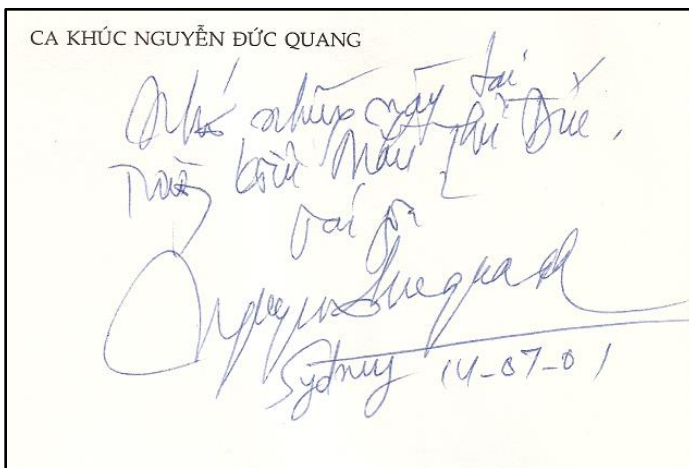 CA KHÚC NGUYỄN ĐỨC QUANG
Nhớ những ngày tại
Thủ Đức,
Nguyen Duc quang
Sydney 14-07-01